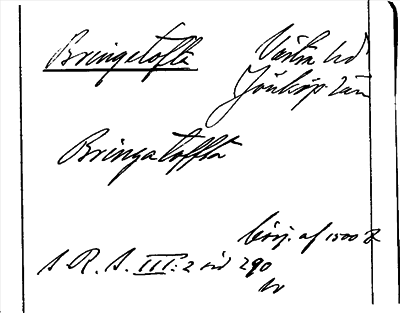 Bringetofta Västra hd
Jönköp. län
Bringatoffta
börj. af 1500 t
S. R. S. III: 2 sid 290